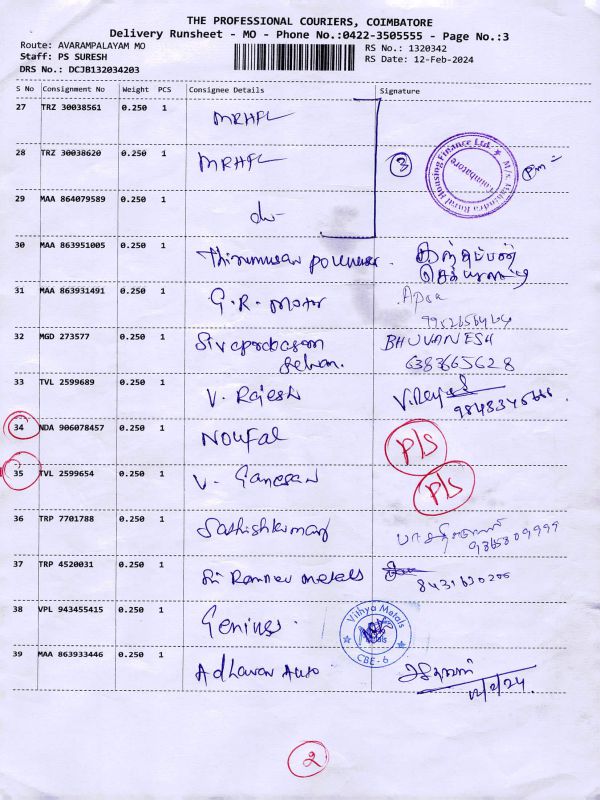 THE PROFESSIONAL COURIERS, COIMBATORE
Delivery Runsheet - MO - Phone No.:0422-3505555 - Page No.:3
Route: AVARAMPALAYAM MO
RS No.: 1320342
Staff: PS SURESH
RS Date: 12-Feb-2024
DRS No.: DCJB132034203
S No Consignment No Weight PCS Consignee Details Signature
27 TRZ 30038561 0.250 1 MRHFL
28 TRZ 30038620 0.250 1 MRHFL 3
M/s. Mahindra Rural Housing Finance Ltd. Coimbatore
29 MAA 864079589 0.250 1 do-
30 MAA 863951005 0.250 1
31 MAA 863931491 0.250 1 G.R. motor
32 MGD 273577 0.250 1 Sivaprakasam BHUVANESH
Selvan. 6383665628
33 TVL 2599689 0.250 1 V. Rajesh
34 NDA 906078457 0.250 1 NOUFAL P/S
35 TVL 2599654 0.250 1 V. Ganesan P/S
36 TRP 7701788 0.250 1 Sathishkumar
9365309999
37 TRP 4520031 0.250 1 Sri Rannev metals
38 VPL 943455415 0.250 1 Genius.
Vithya Metals CBE-6
39 MAA 863933446 0.250 1 Adhavan Auto
12/2/24.
2